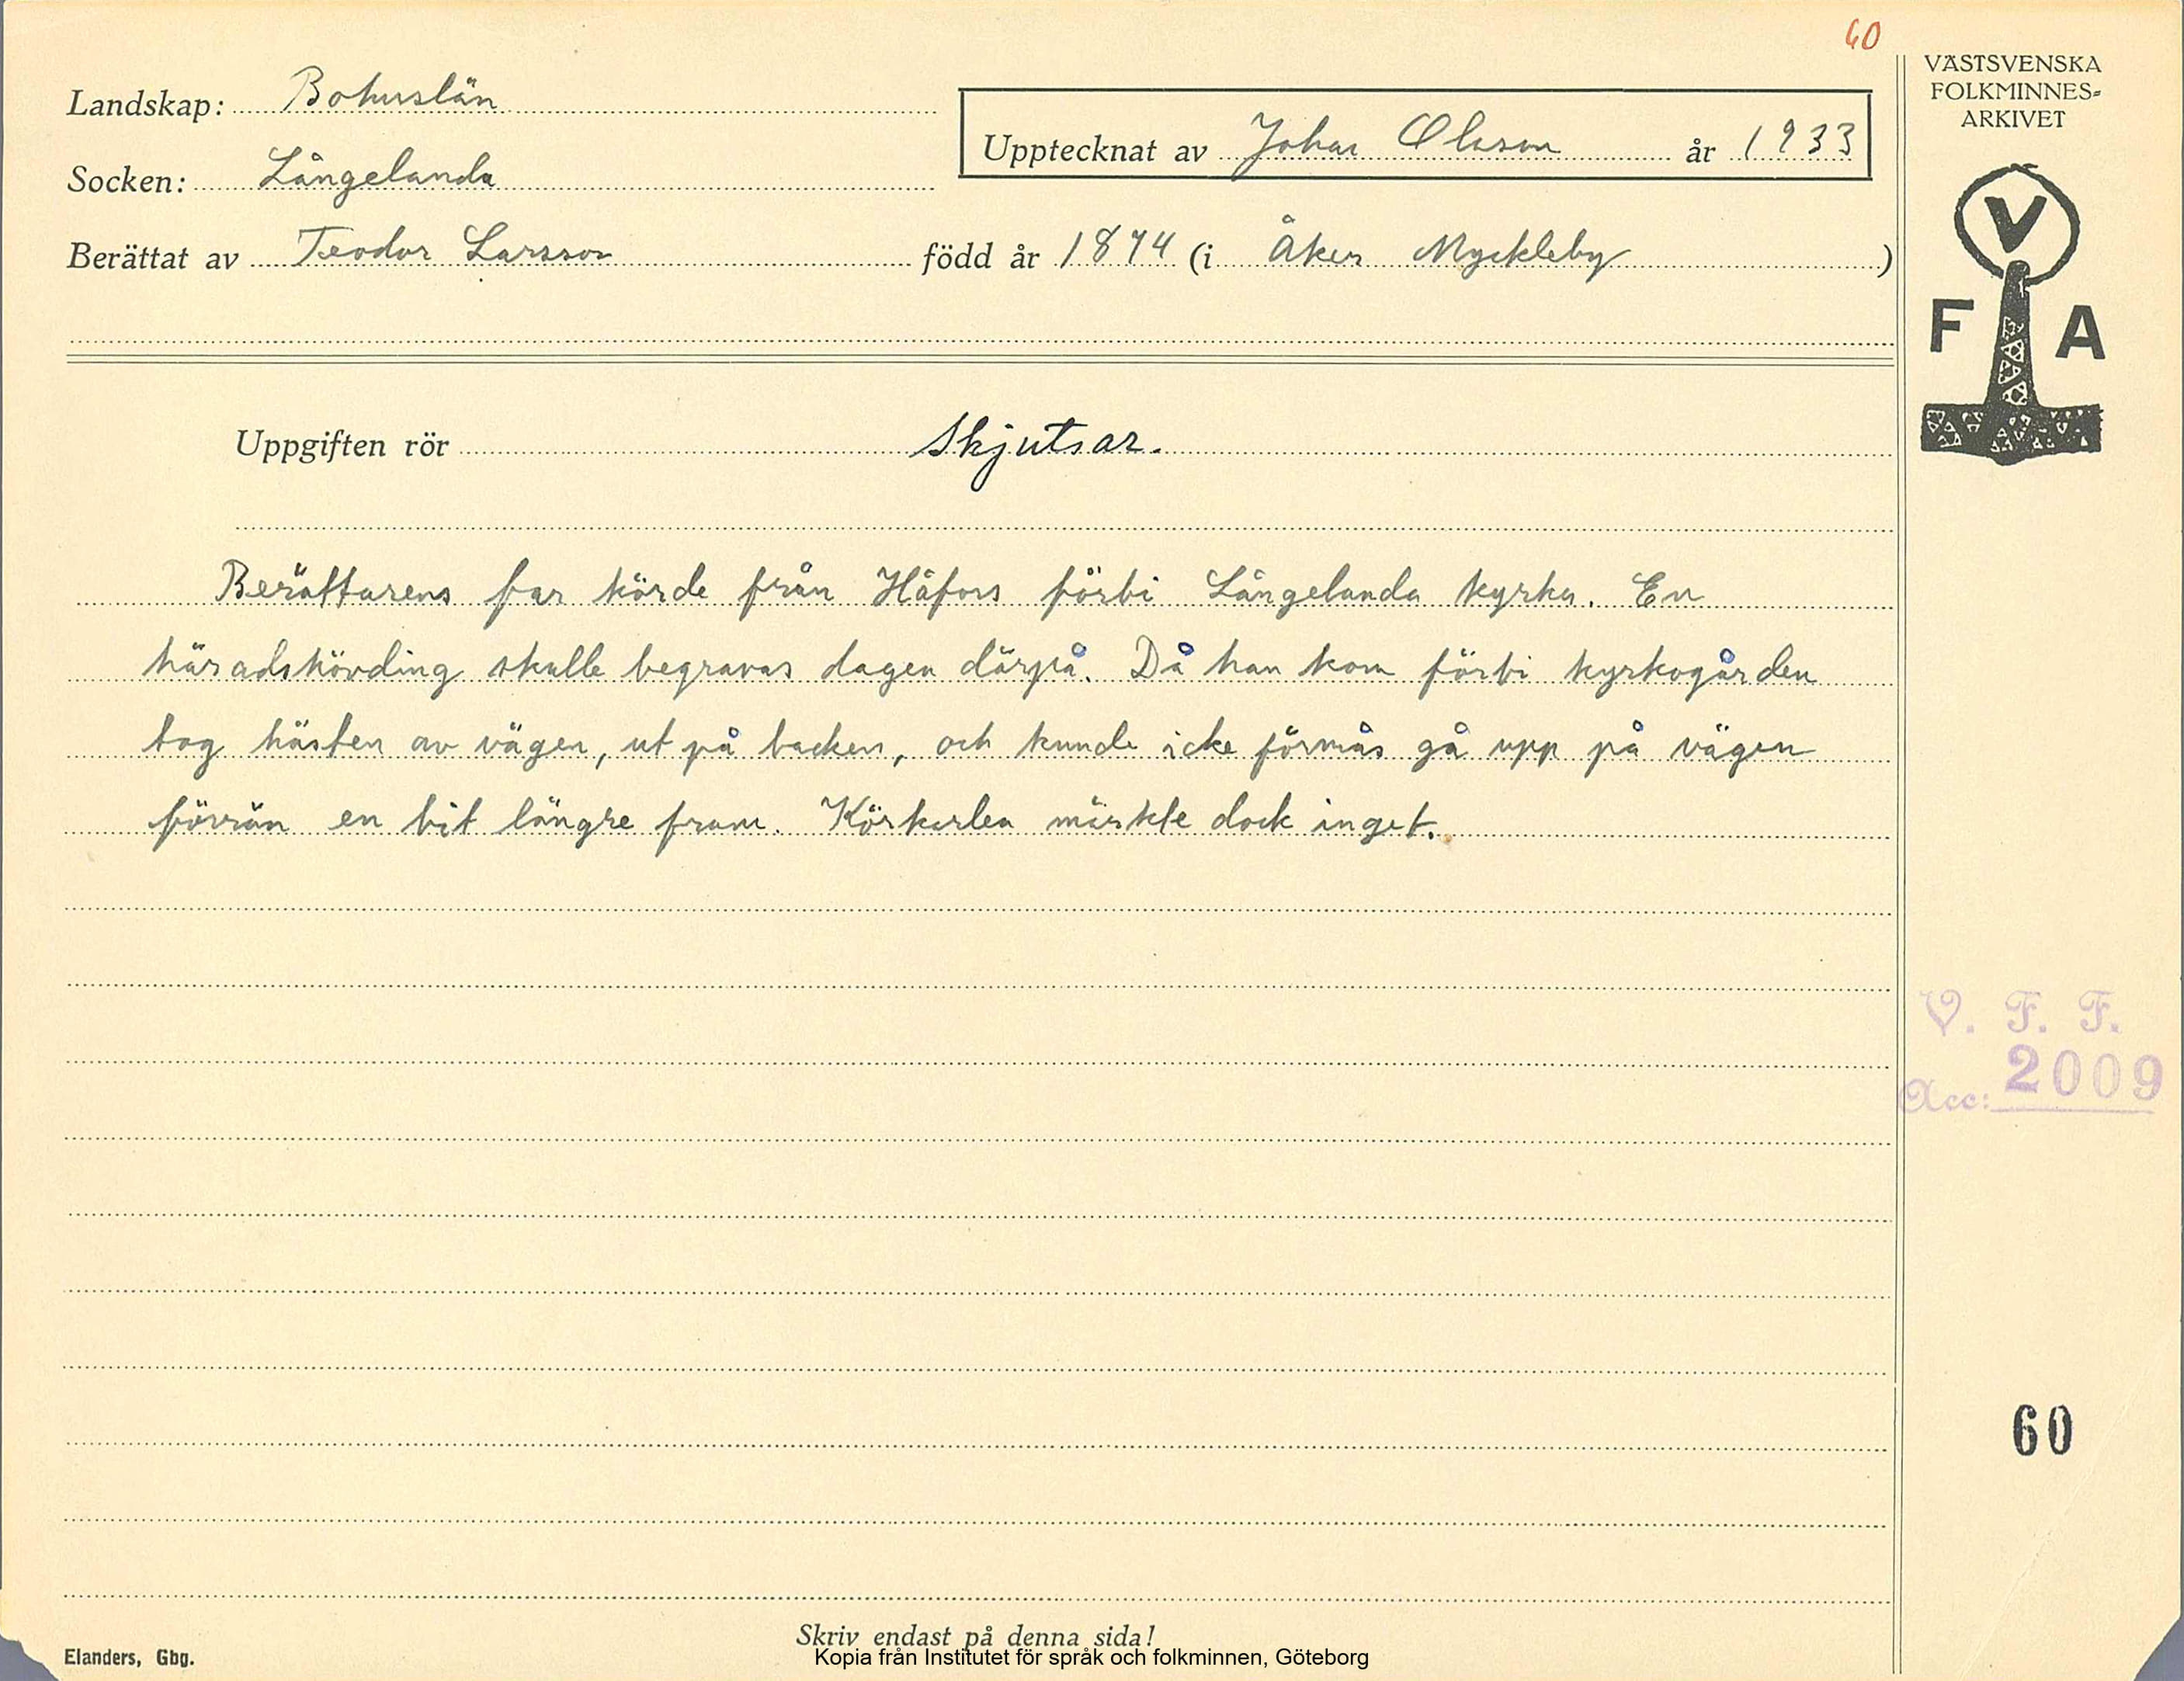 60
VÄSTSVENSKA
FOLKMINNES-
ARKIVET
Landskap: Bohuslän
Upptecknat av Johan Olsson år 1933
Socken: Långelanda
Berättat av Teodor Larsson född år 1874 (i Åker Myckleby)
V
F A
Uppgiften rör Skjutsar.
Berättarens far körde från Håfors förbi Långelanda kyrka. En
häradshövding skulle begravas dagen därpå. Då han kom förbi kyrkogården
tog hästen av vägen, ut på backen, och kunde icke förmås gå upp på vägen
förrän en bit längre fram. Körkarlen märkte dock inget.
V. F. F.
Acc: 2009
60
Skriv endast på denna sida!
Elanders, Gbg.
Kopia från Institutet för språk och folkminnen, Göteborg